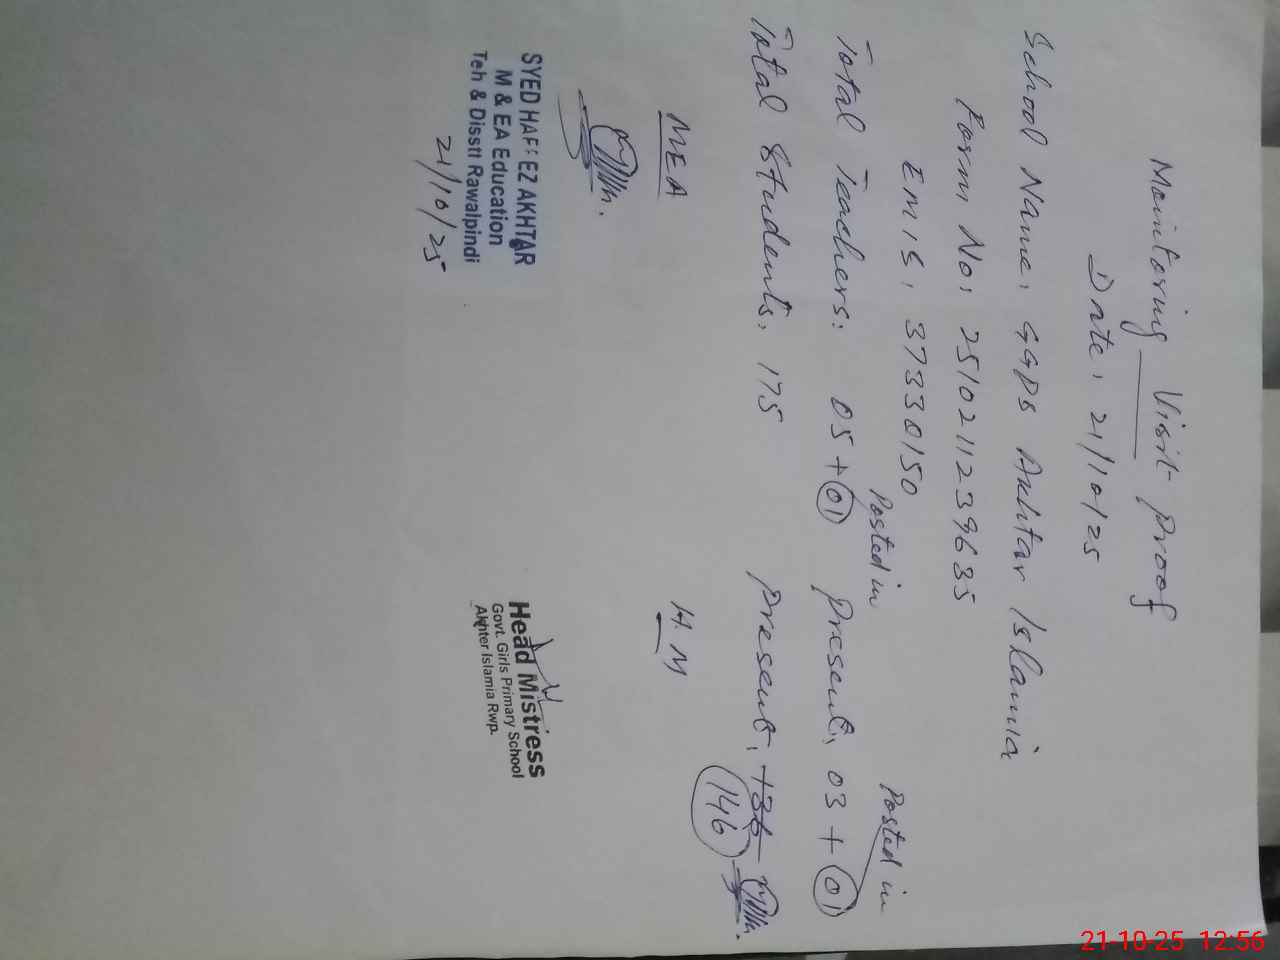 Mointoring Visit Proof
Date: 21/10/25
School Name: GGPS Akhtar Islamia
Form No: 2510211239635
EMIS: 37330150
Posted in Posted in
Total Teachers: 05 + 01 Present: 03 + 01
Total Students: 175 Present: 136 146
MEA H.M
SYED HAFEEZ AKHTAR
M & EA Education
Teh & Disstt Rawalpindi
21/10/25
Head Mistress
Govt. Girls Primary School
Akhter Islamia Rwp.
21-10-25 12:56